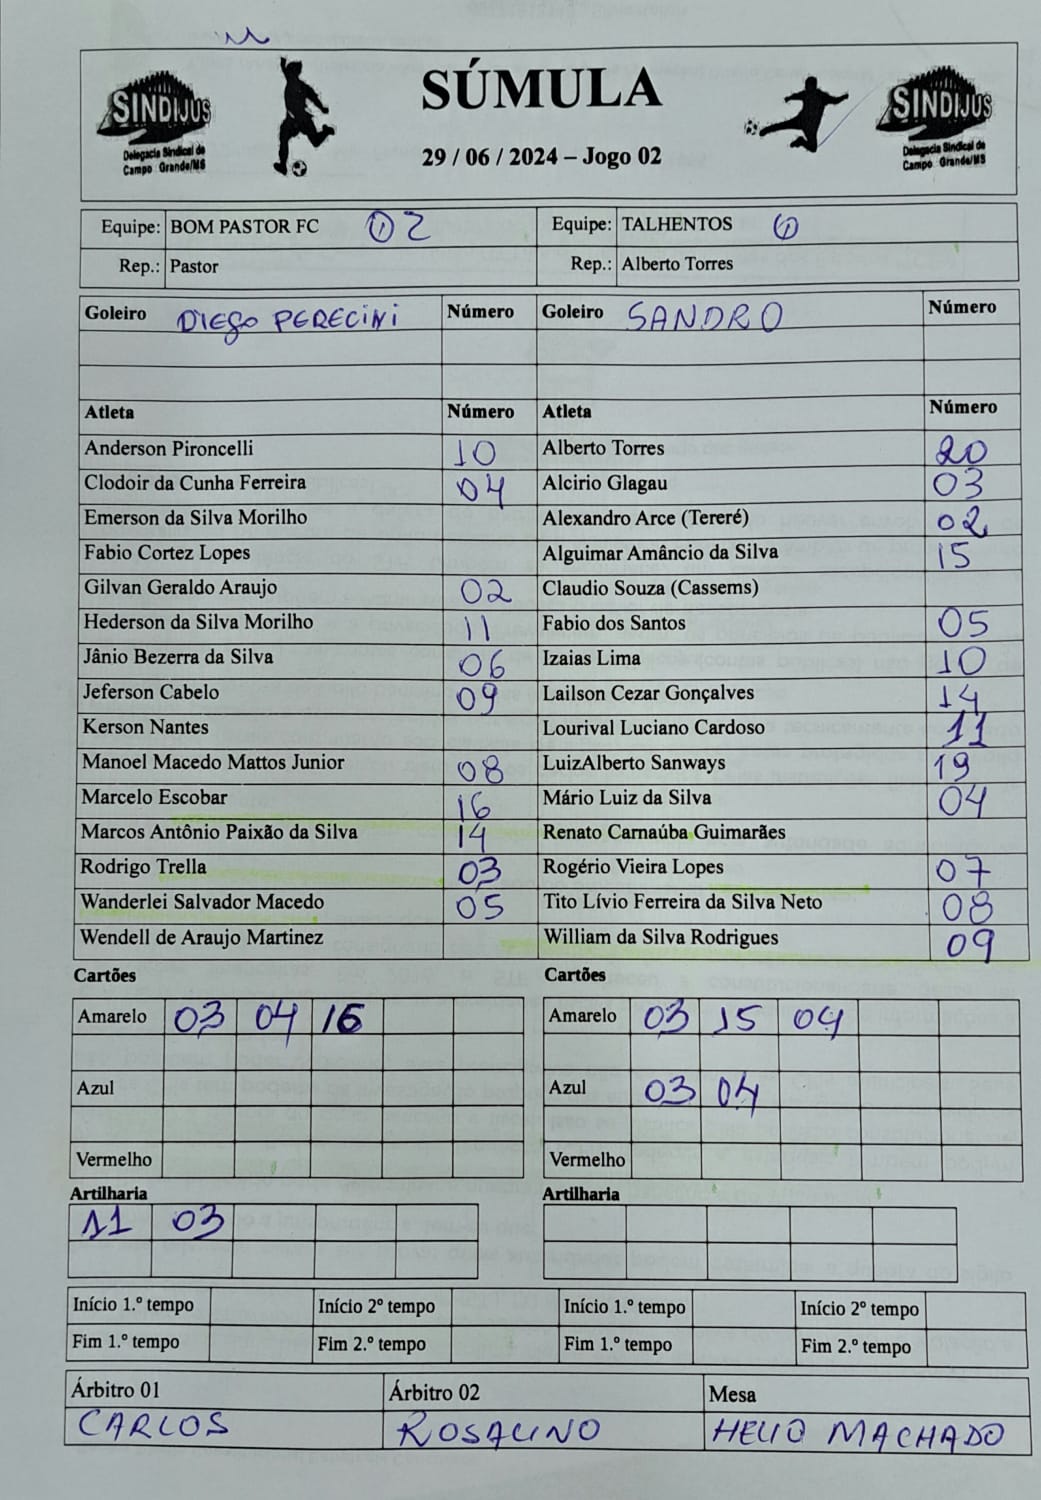 SÚMULA
SINDIJUS
Delegacia Sindical de
Campo Grande/MS
29 / 06 / 2024 – Jogo 02
SINDIJUS
Delegacia Sindical de
Campo Grande/MS
Equipe: BOM PASTOR FC 02 Equipe: TALHENTOS 0
Rep.: Pastor Rep.: Alberto Torres
Goleiro DIEGO PERECINI Número Goleiro SANDRO Número
Atleta Número Atleta Número
Anderson Pironcelli 10 Alberto Torres 20
Clodoir da Cunha Ferreira 04 Alcirio Glagau 03
Emerson da Silva Morilho Alexandro Arce (Tereré) 02
Fabio Cortez Lopes Alguimar Amâncio da Silva 15
Gilvan Geraldo Araujo 02 Claudio Souza (Cassems)
Hederson da Silva Morilho 11 Fabio dos Santos 05
Jânio Bezerra da Silva 06 Izaias Lima 10
Jeferson Cabelo 09 Lailson Cezar Gonçalves 14
Kerson Nantes Lourival Luciano Cardoso 11
Manoel Macedo Mattos Junior 08 LuizAlberto Sanways 19
Marcelo Escobar 16 Mário Luiz da Silva 04
Marcos Antônio Paixão da Silva 14 Renato Carnaúba Guimarães
Rodrigo Trella 03 Rogério Vieira Lopes 07
Wanderlei Salvador Macedo 05 Tito Lívio Ferreira da Silva Neto 08
Wendell de Araujo Martinez William da Silva Rodrigues 09
Cartões Cartões
Amarelo 03 04 16 Amarelo 03 15 04
Azul Azul 03 04
Vermelho Vermelho
Artilharia Artilharia
11 03
Início 1.º tempo Início 2º tempo Início 1.º tempo Início 2º tempo
Fim 1.º tempo Fim 2.º tempo Fim 1.º tempo Fim 2.º tempo
Árbitro 01 Árbitro 02 Mesa
CARLOS ROSALINO HELIO MACHADO